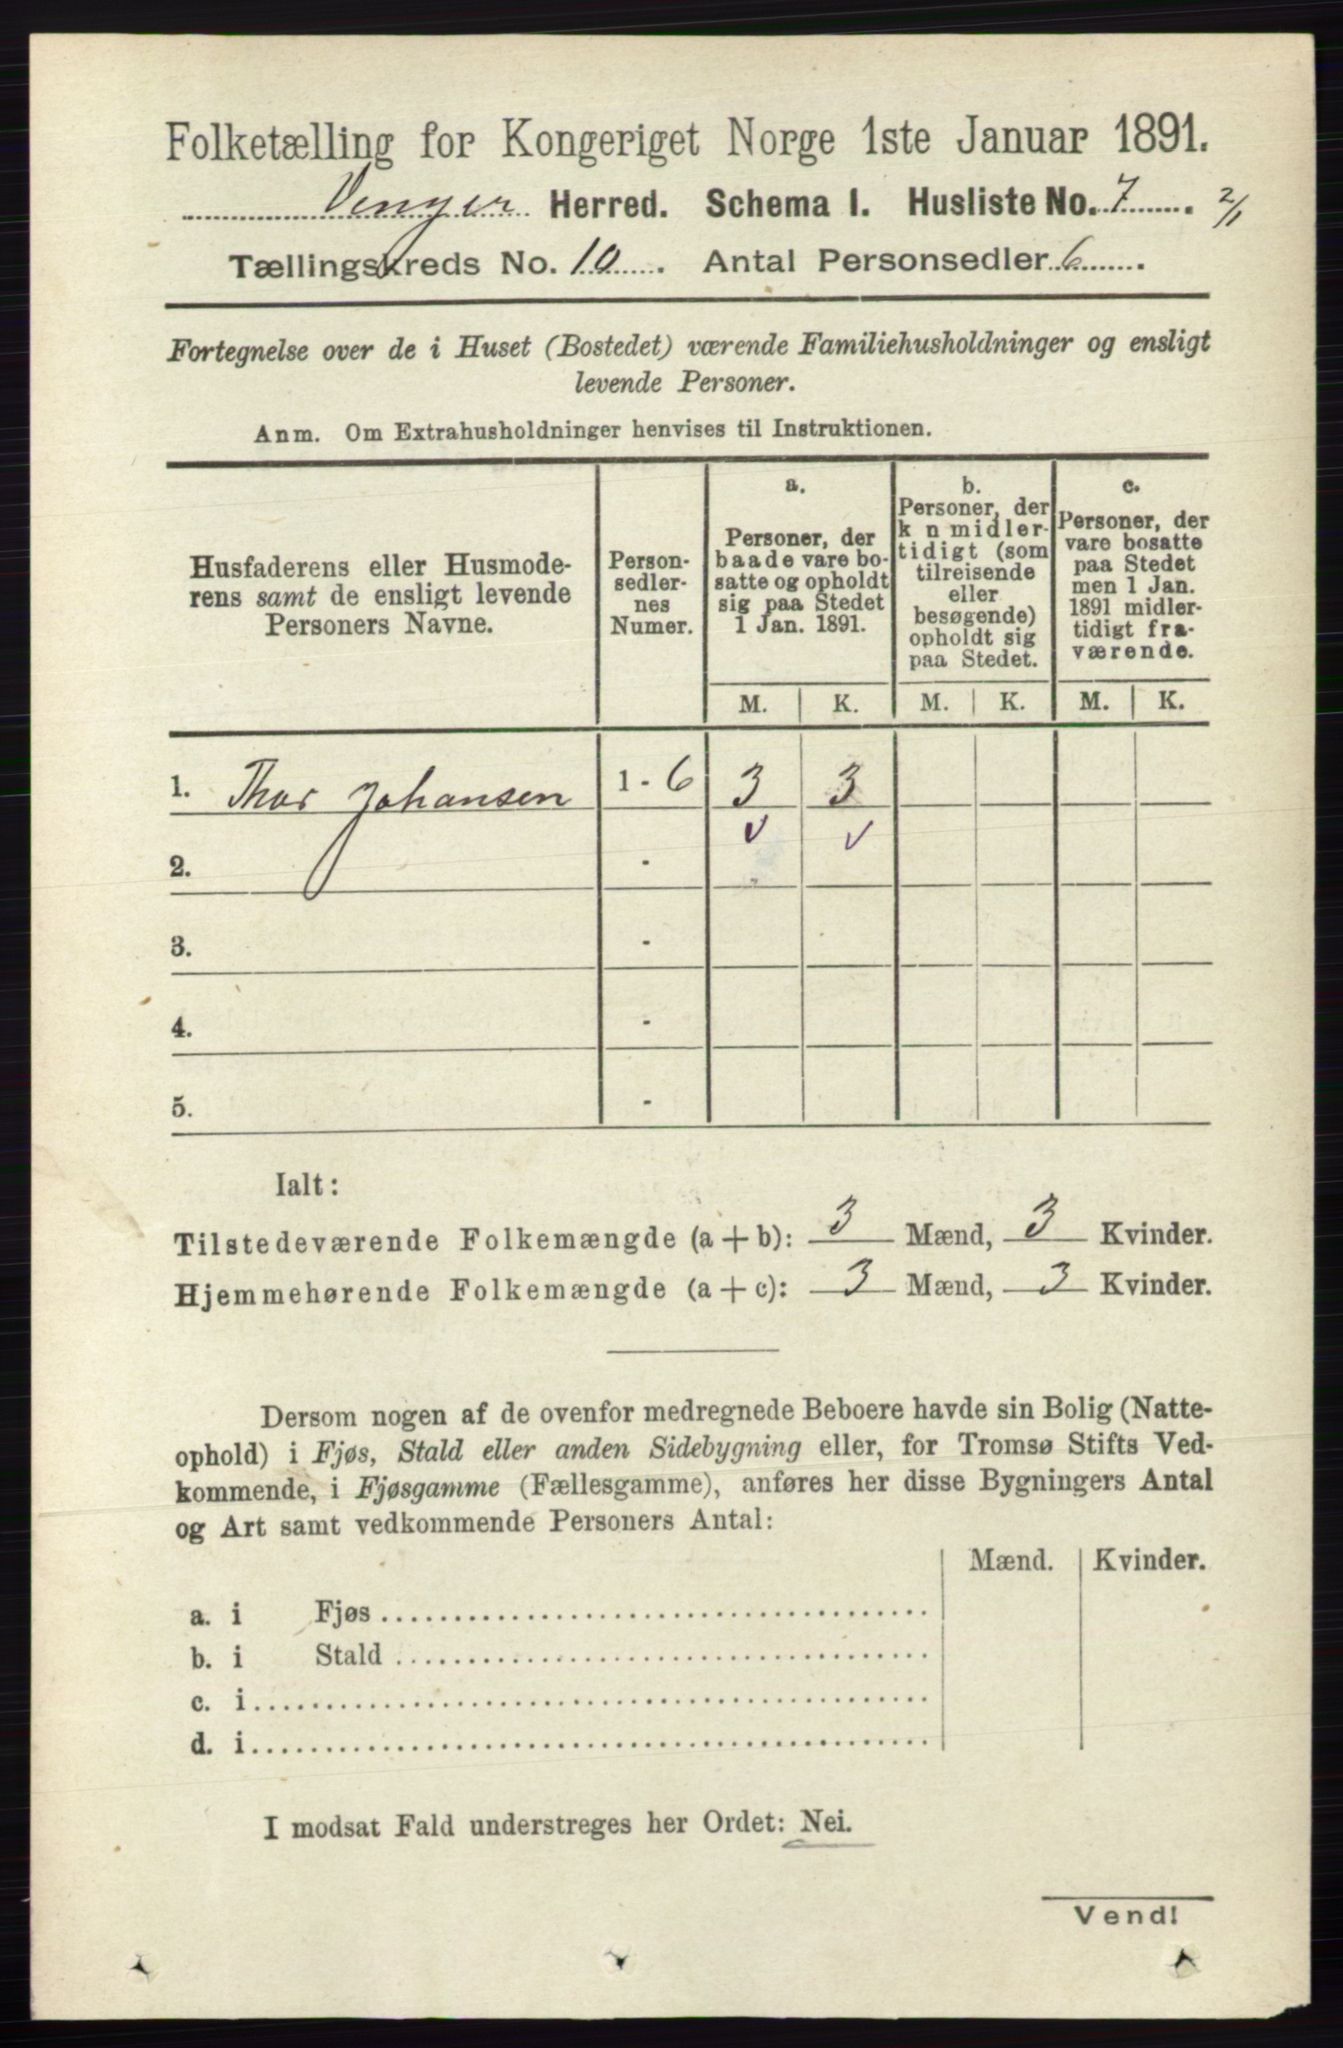 Folketælling for Kongeriget Norge 1ste Januar 1891.
Vinger Herred. Schema I. Husliste No. 7. 2/1
Tællingskreds No. 10. Antal Personsedler 6.
Fortegnelse over de i Huset (Bostedet) værende Familiehusholdninger og ensligt
levende Personer.
Anm. Om Extrahusholdninger henvises til Instruktionen.
Husfaderens eller Husmode-
rens samt de ensligt levende
Personers Navne.
Person-
sedler-
nes
Numer.
a.
Personer, der
baade vare bo-
satte og opholdt
sig paa Stedet
1 Jan. 1891.
b.
Personer, der
k n midler-
tidigt (som
tilreisende
eller
besøgende)
opholdt sig
paa Stedet.
c.
Personer, der
vare bosatte
paa Stedet
men 1 Jan.
1891 midler-
tidigt fra-
værende.
M. K. M. K. M. K.
1. Thor Johansen 1 - 6 3 3
2. -
3. -
4. -
5. -
Ialt:
Tilstedeværende Folkemængde (a + b): 3 Mænd, 3 Kvinder.
Hjemmehørende Folkemængde (a + c): 3 Mænd, 3 Kvinder.
Dersom nogen af de ovenfor medregnede Beboere havde sin Bolig (Natte-
ophold) i Fjøs, Stald eller anden Sidebygning eller, for Tromsø Stifts Ved-
kommende, i Fjøsgamme (Fællesgamme), anføres her disse Bygningers Antal
og Art samt vedkommende Personers Antal:
Mænd. Kvinder.
a. i Fjøs
b. i Stald
c. i
d. i
I modsat Fald understreges her Ordet: Nei.
Vend!